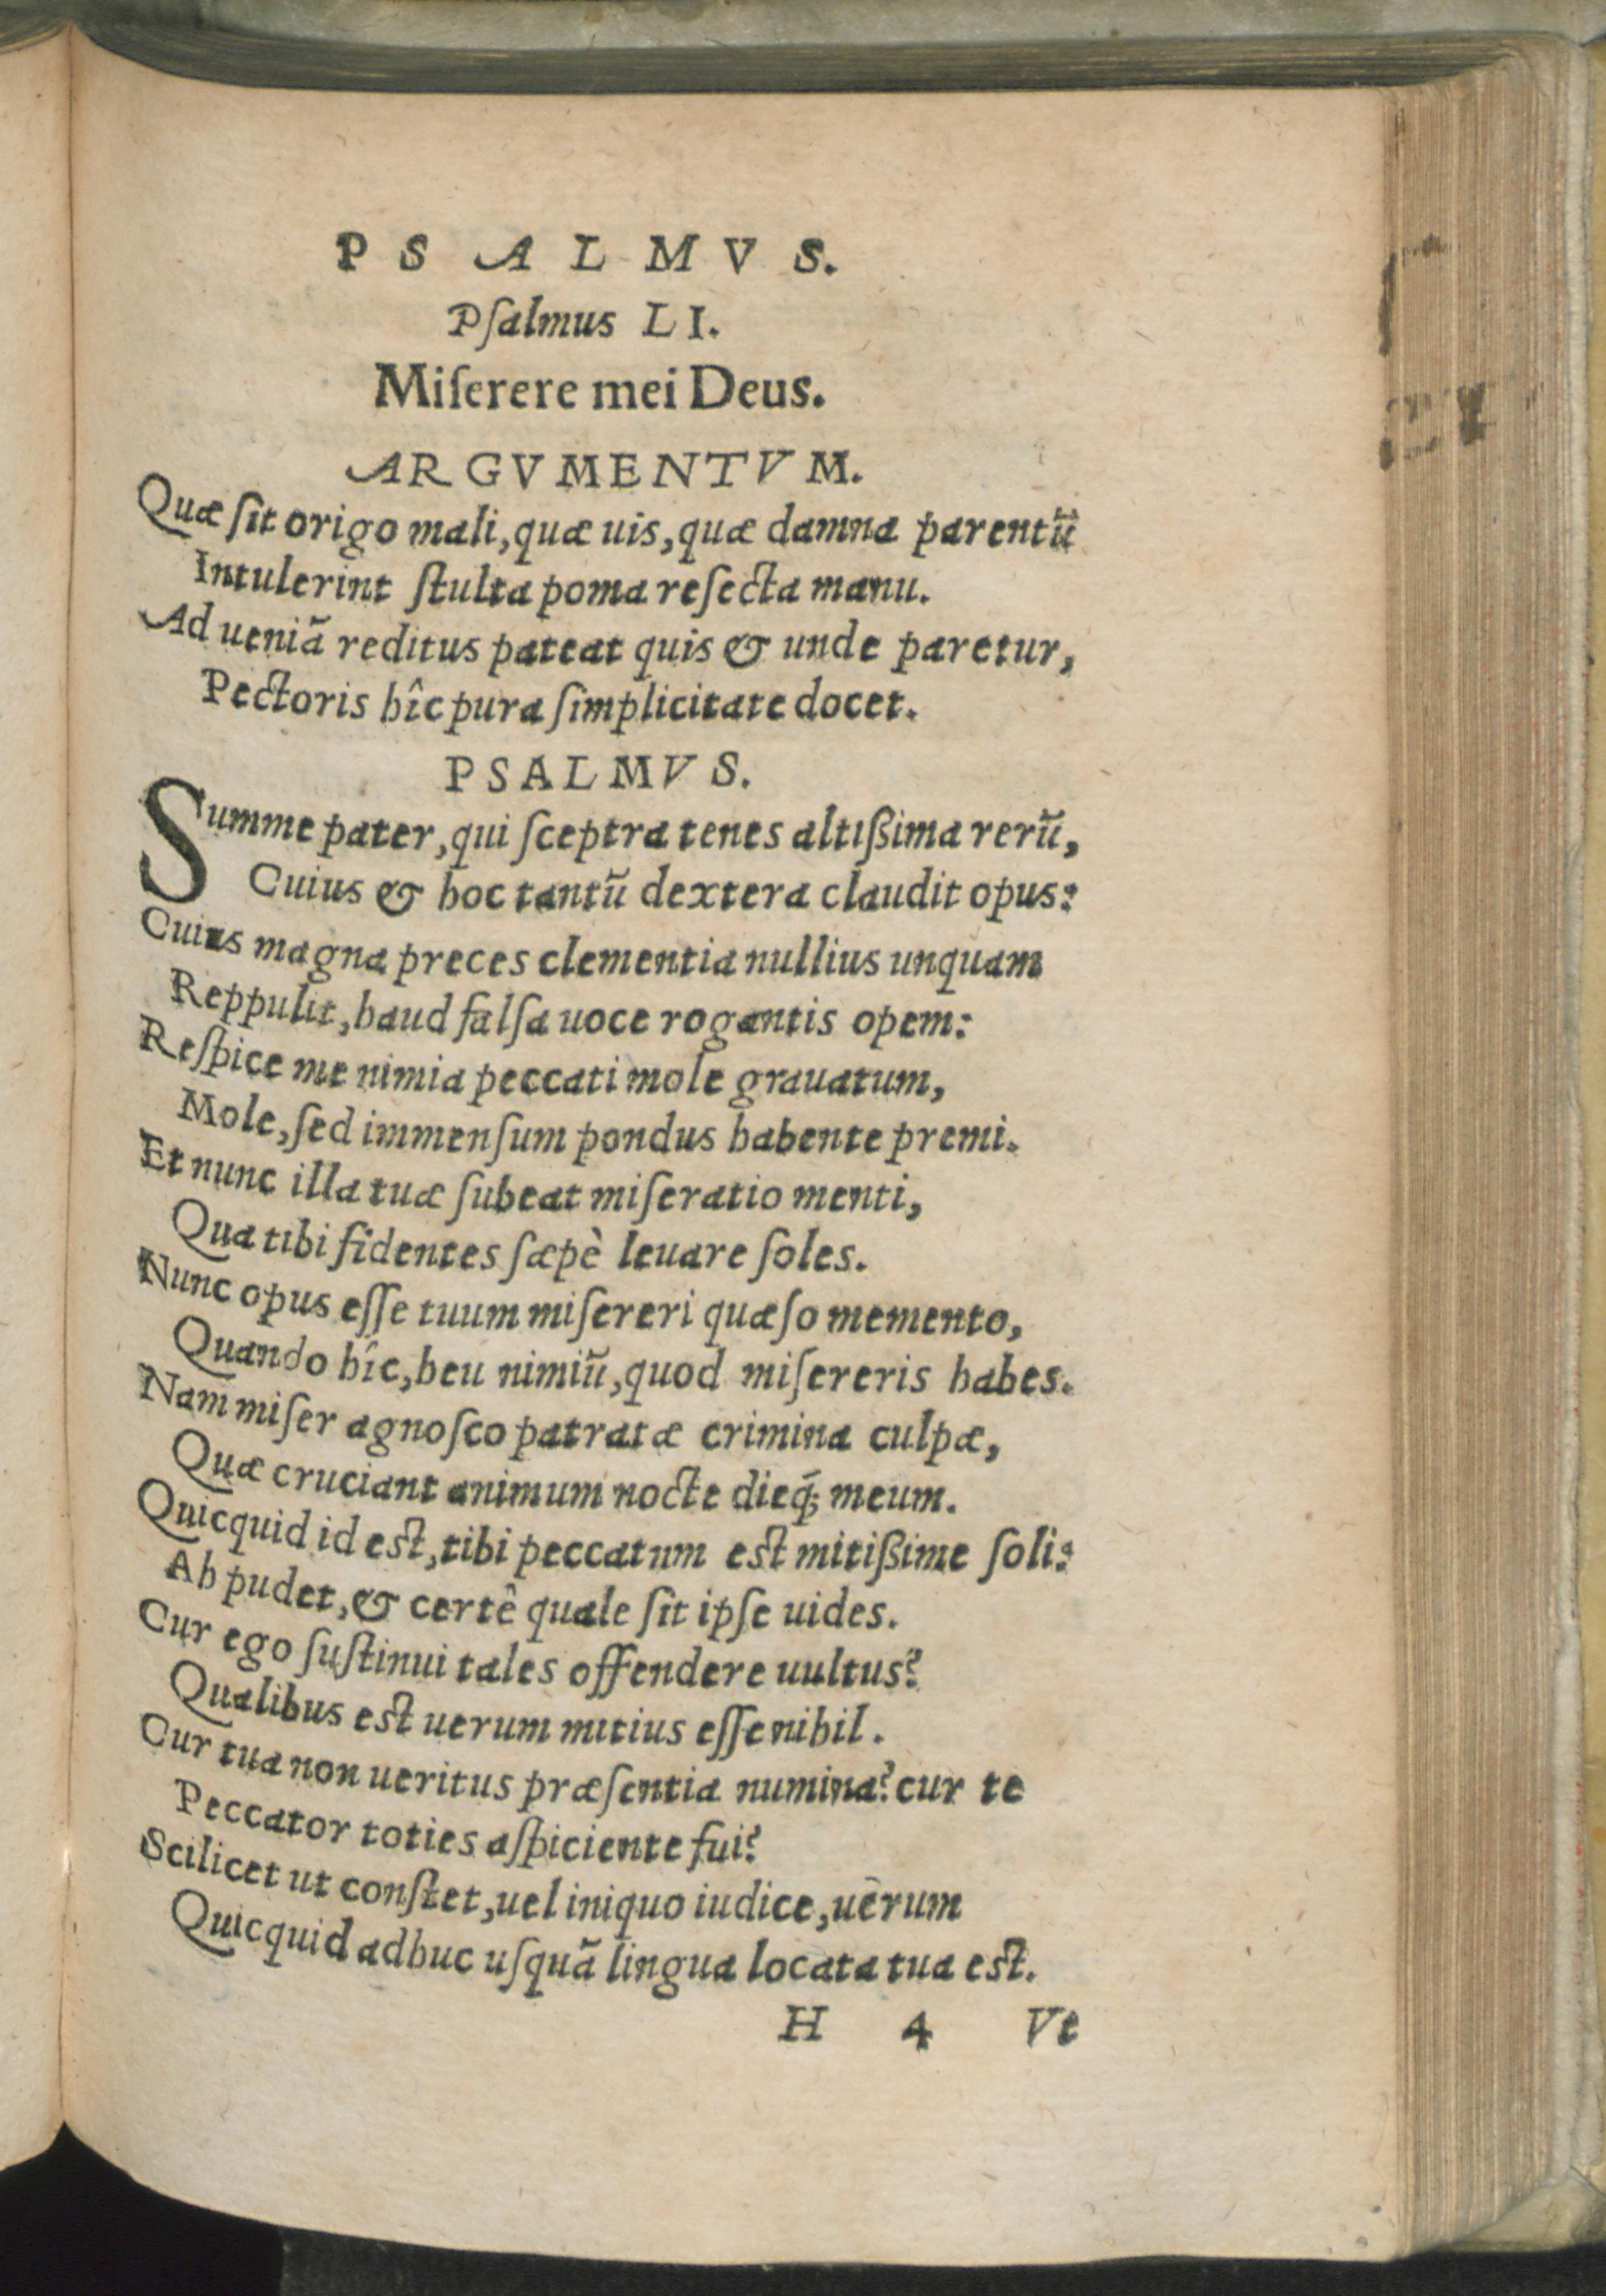 PSALMVS.
Pſalmus LI.
Miſerere mei Deus.
ARGVMENTVM.
Quæ ſit origo mali, quæ uis, quæ damna parentũ
Intulerint ſtulta poma reſecta manu.
Ad ueniã reditus pateat quis & unde paretur,
Pectoris hîc pura ſimplicitate docet.
PSALMVS.
Summe pater, qui ſceptra tenes altißima rerũ,
Cuius & hoc tantũ dextera claudit opus:
Cuius magna preces clementia nullius unquam
Reppulit, haud falſa uoce rogantis opem:
Reſpice me nimia peccati mole grauatum,
Mole, ſed immenſum pondus habente premi.
Et nunc illa tuæ ſubeat miſeratio menti,
Qua tibi fidentes ſæpè leuare ſoles.
Nunc opus eſſe tuum miſereri quæſo memento,
Quando hîc, heu nimiũ, quod miſereris habes.
Nam miſer agnoſco patratæ crimina culpæ,
Quæ cruciant animum nocte dieq́; meum.
Quicquid id est, tibi peccatum est mitißime ſoli:
Ah pudet, & certê quale ſit ipſe uides.
Cur ego ſuſtinui tales offendere uultus?
Qualibus est uerum mitius eſſe nihil.
Cur tua non ueritus præſentia numina? cur te
Peccator toties aſpiciente fui?
Scilicet ut conſtet, uel iniquo iudice, uêrum
Quicquid adhuc uſquã lingua locata tua est.
H 4 Vt